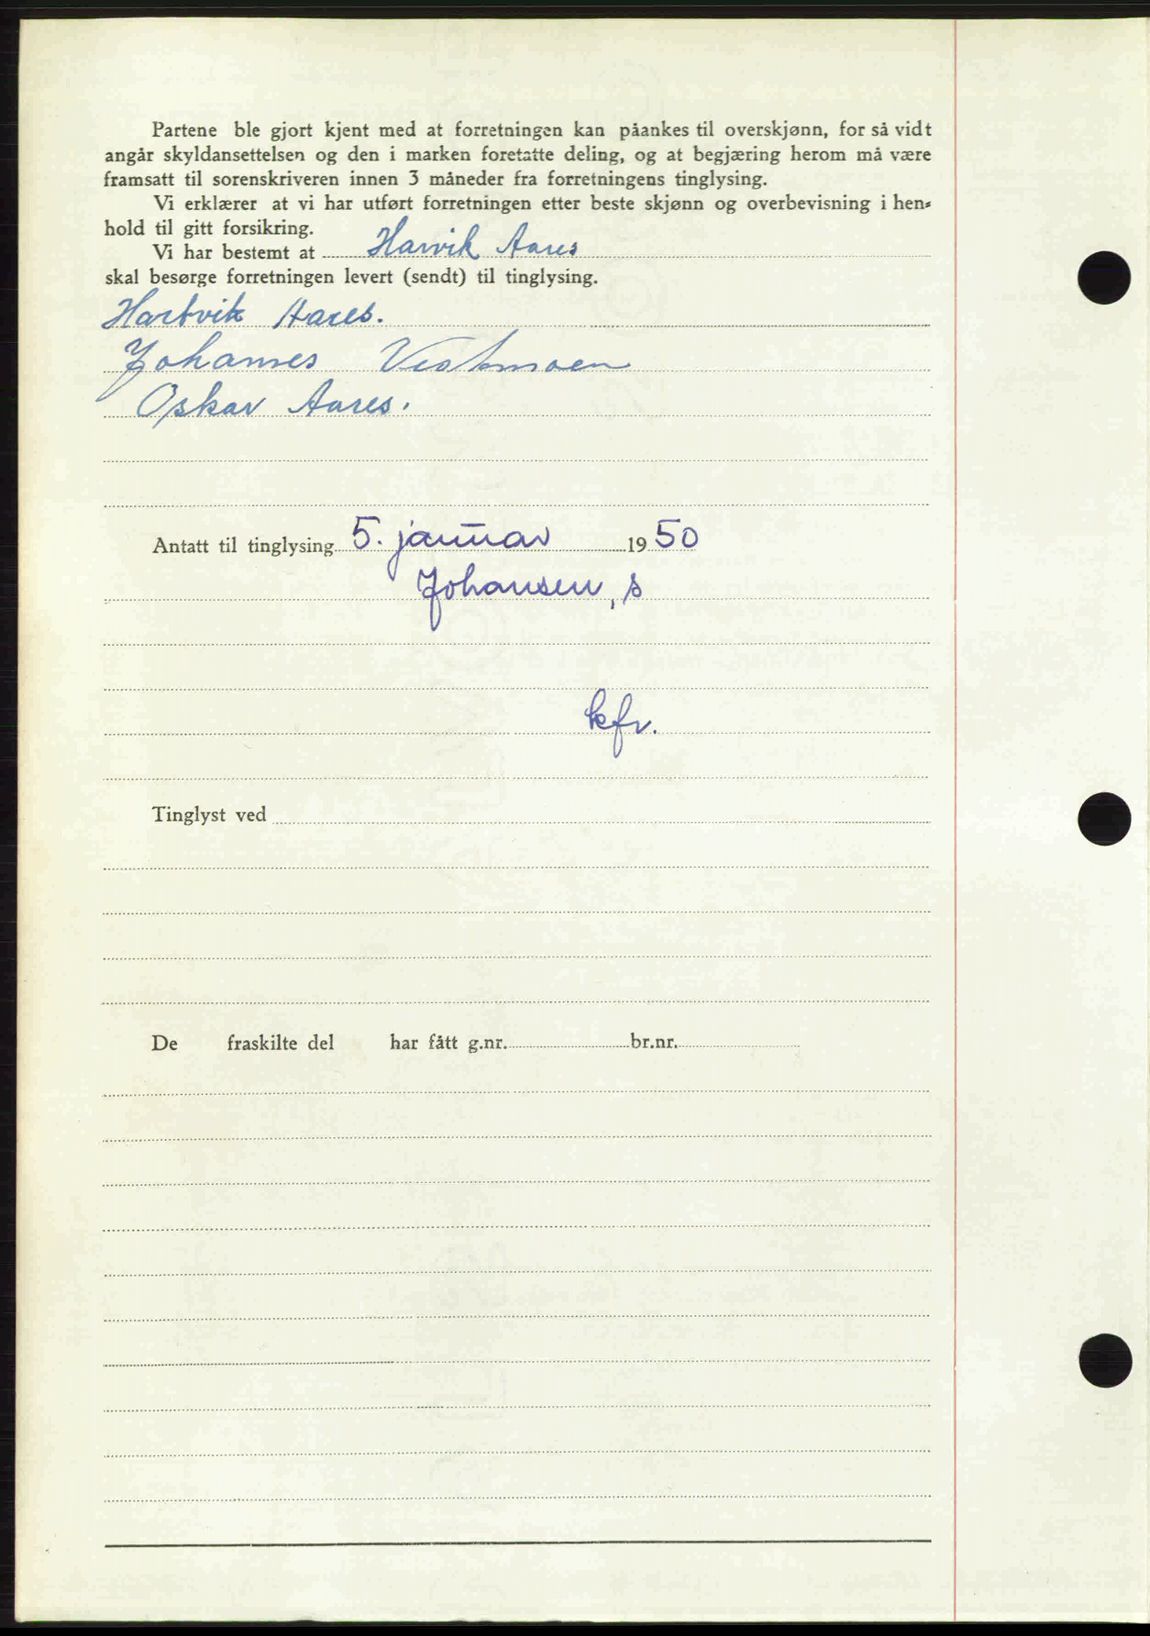 Partene ble gjort kjent med at forretningen kan påankes til overskjønn, for så vidt
angår skyldansettelsen og den i marken foretatte deling, og at begjæring herom må være
framsatt til sorenskriveren innen 3 måneder fra forretningens tinglysing.
Vi erklærer at vi har utført forretningen etter beste skjønn og overbevisning i hen-
hold til gitt forsikring.
Vi har bestemt at Harvik Aares
skal besørge forretningen levert (sendt) til tinglysing.
Hartvik Aares.
Johannes Vestmoen
Oskar Aares.
Antatt til tinglysing 5. januar 1950
Johansen, s
kfr.
Tinglyst ved
De fraskilte del har fått g.nr. br.nr.